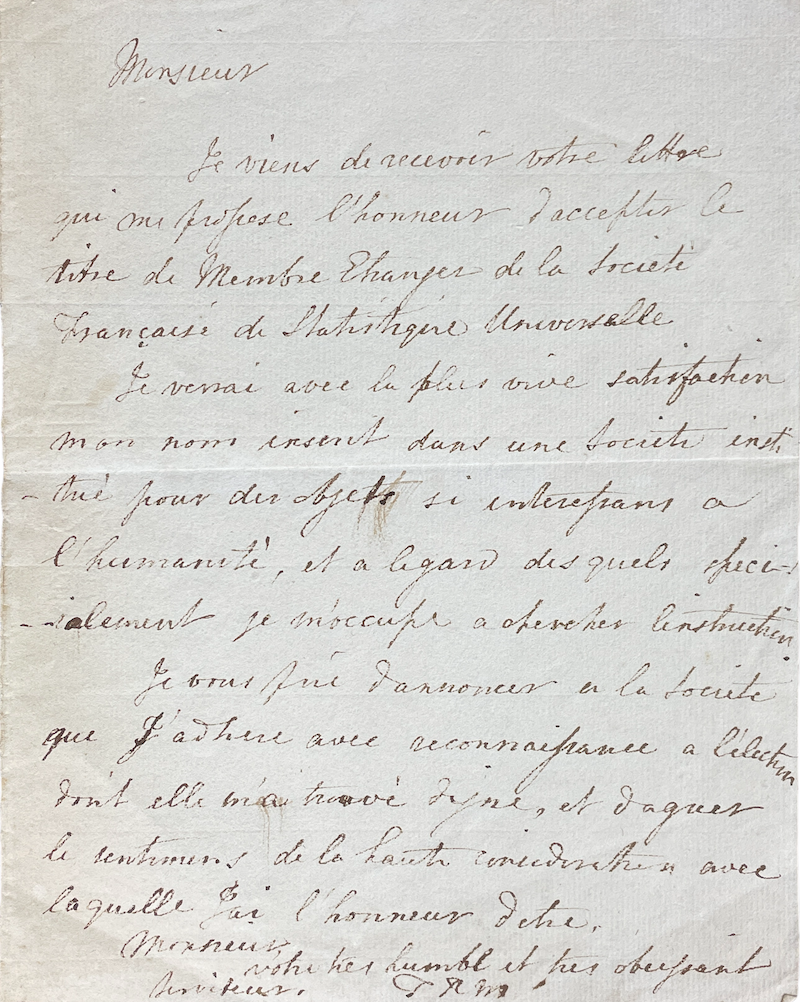 Monsieur
Je viens de recevoir votre lettre
qui me propose l'honneur d'accepter le
titre de Membre Etranger de la Societé
Française de Statistique Universelle
Je verrai avec la plus vive satisfaction
mon nom inserit dans une Societe insti
-tué pour des objets si interessans a
l'humanité, et a legard desquels speci-
-ialement je m'occupe a chercher linstruction.
Je vous prie d'annoncer a la Societe
que J'adhere avec reconnaissance a l'élection
dont elle m'a trouvé digne, et d'agreer
le sentimens de la haute consideration avec
laquelle J'ai l'honneur detre,
Monsieur
votre tres humbl et tres obeissant
serviteur.